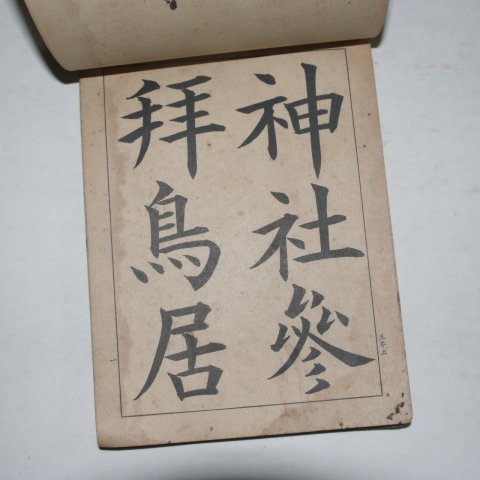 神社參
拜鳥居
三年上